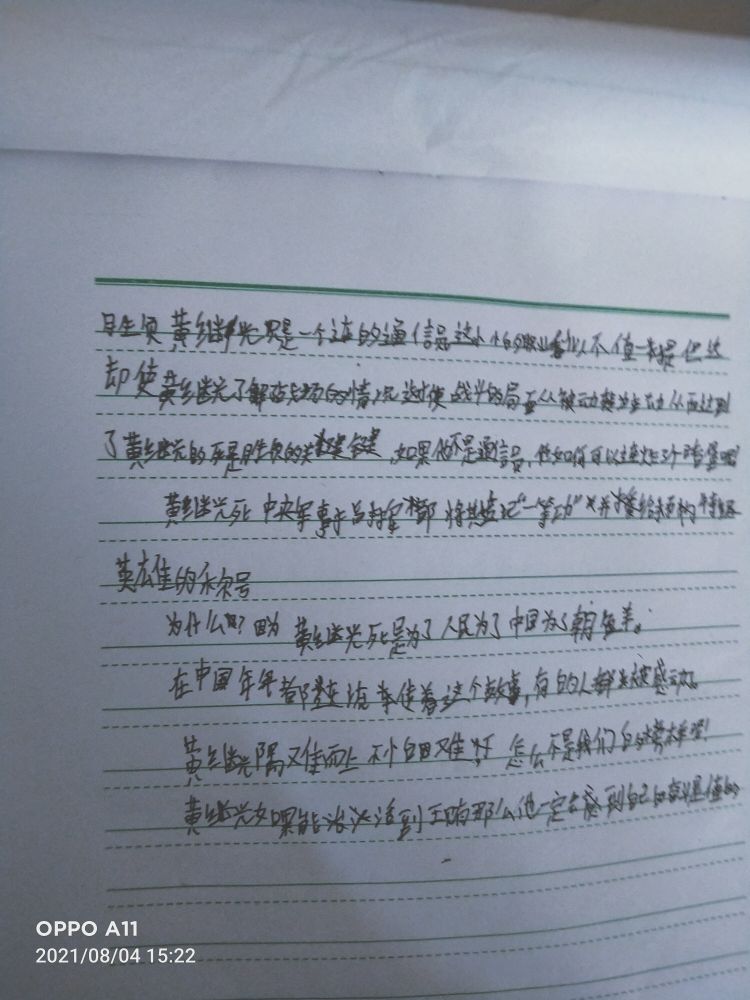 黄继光只是一个连的通信员这小小的职业看似不值一提但这
却使黄继光了解战场的情况 这才使战斗的局面从被动转为主动从而达到
了黄继光的死是胜负的关键 如果他不是通信员,他如何可以连炸3个暗堡呢
黄继光死 中央军事 将其追记"一等功" 并
英雄的称号
为什么呢?因为 黄继光死是为了人民为了中国为了朝鲜。
在中国年年都在流传着这个故事,有的人都被感动。
黄继光 迎难而上 不怕困难 怎么不是我们的榜样呢!
黄继光如果能活到 那么他一定会感到自己的 是值的
OPPO A11
2021/08/04 15:22